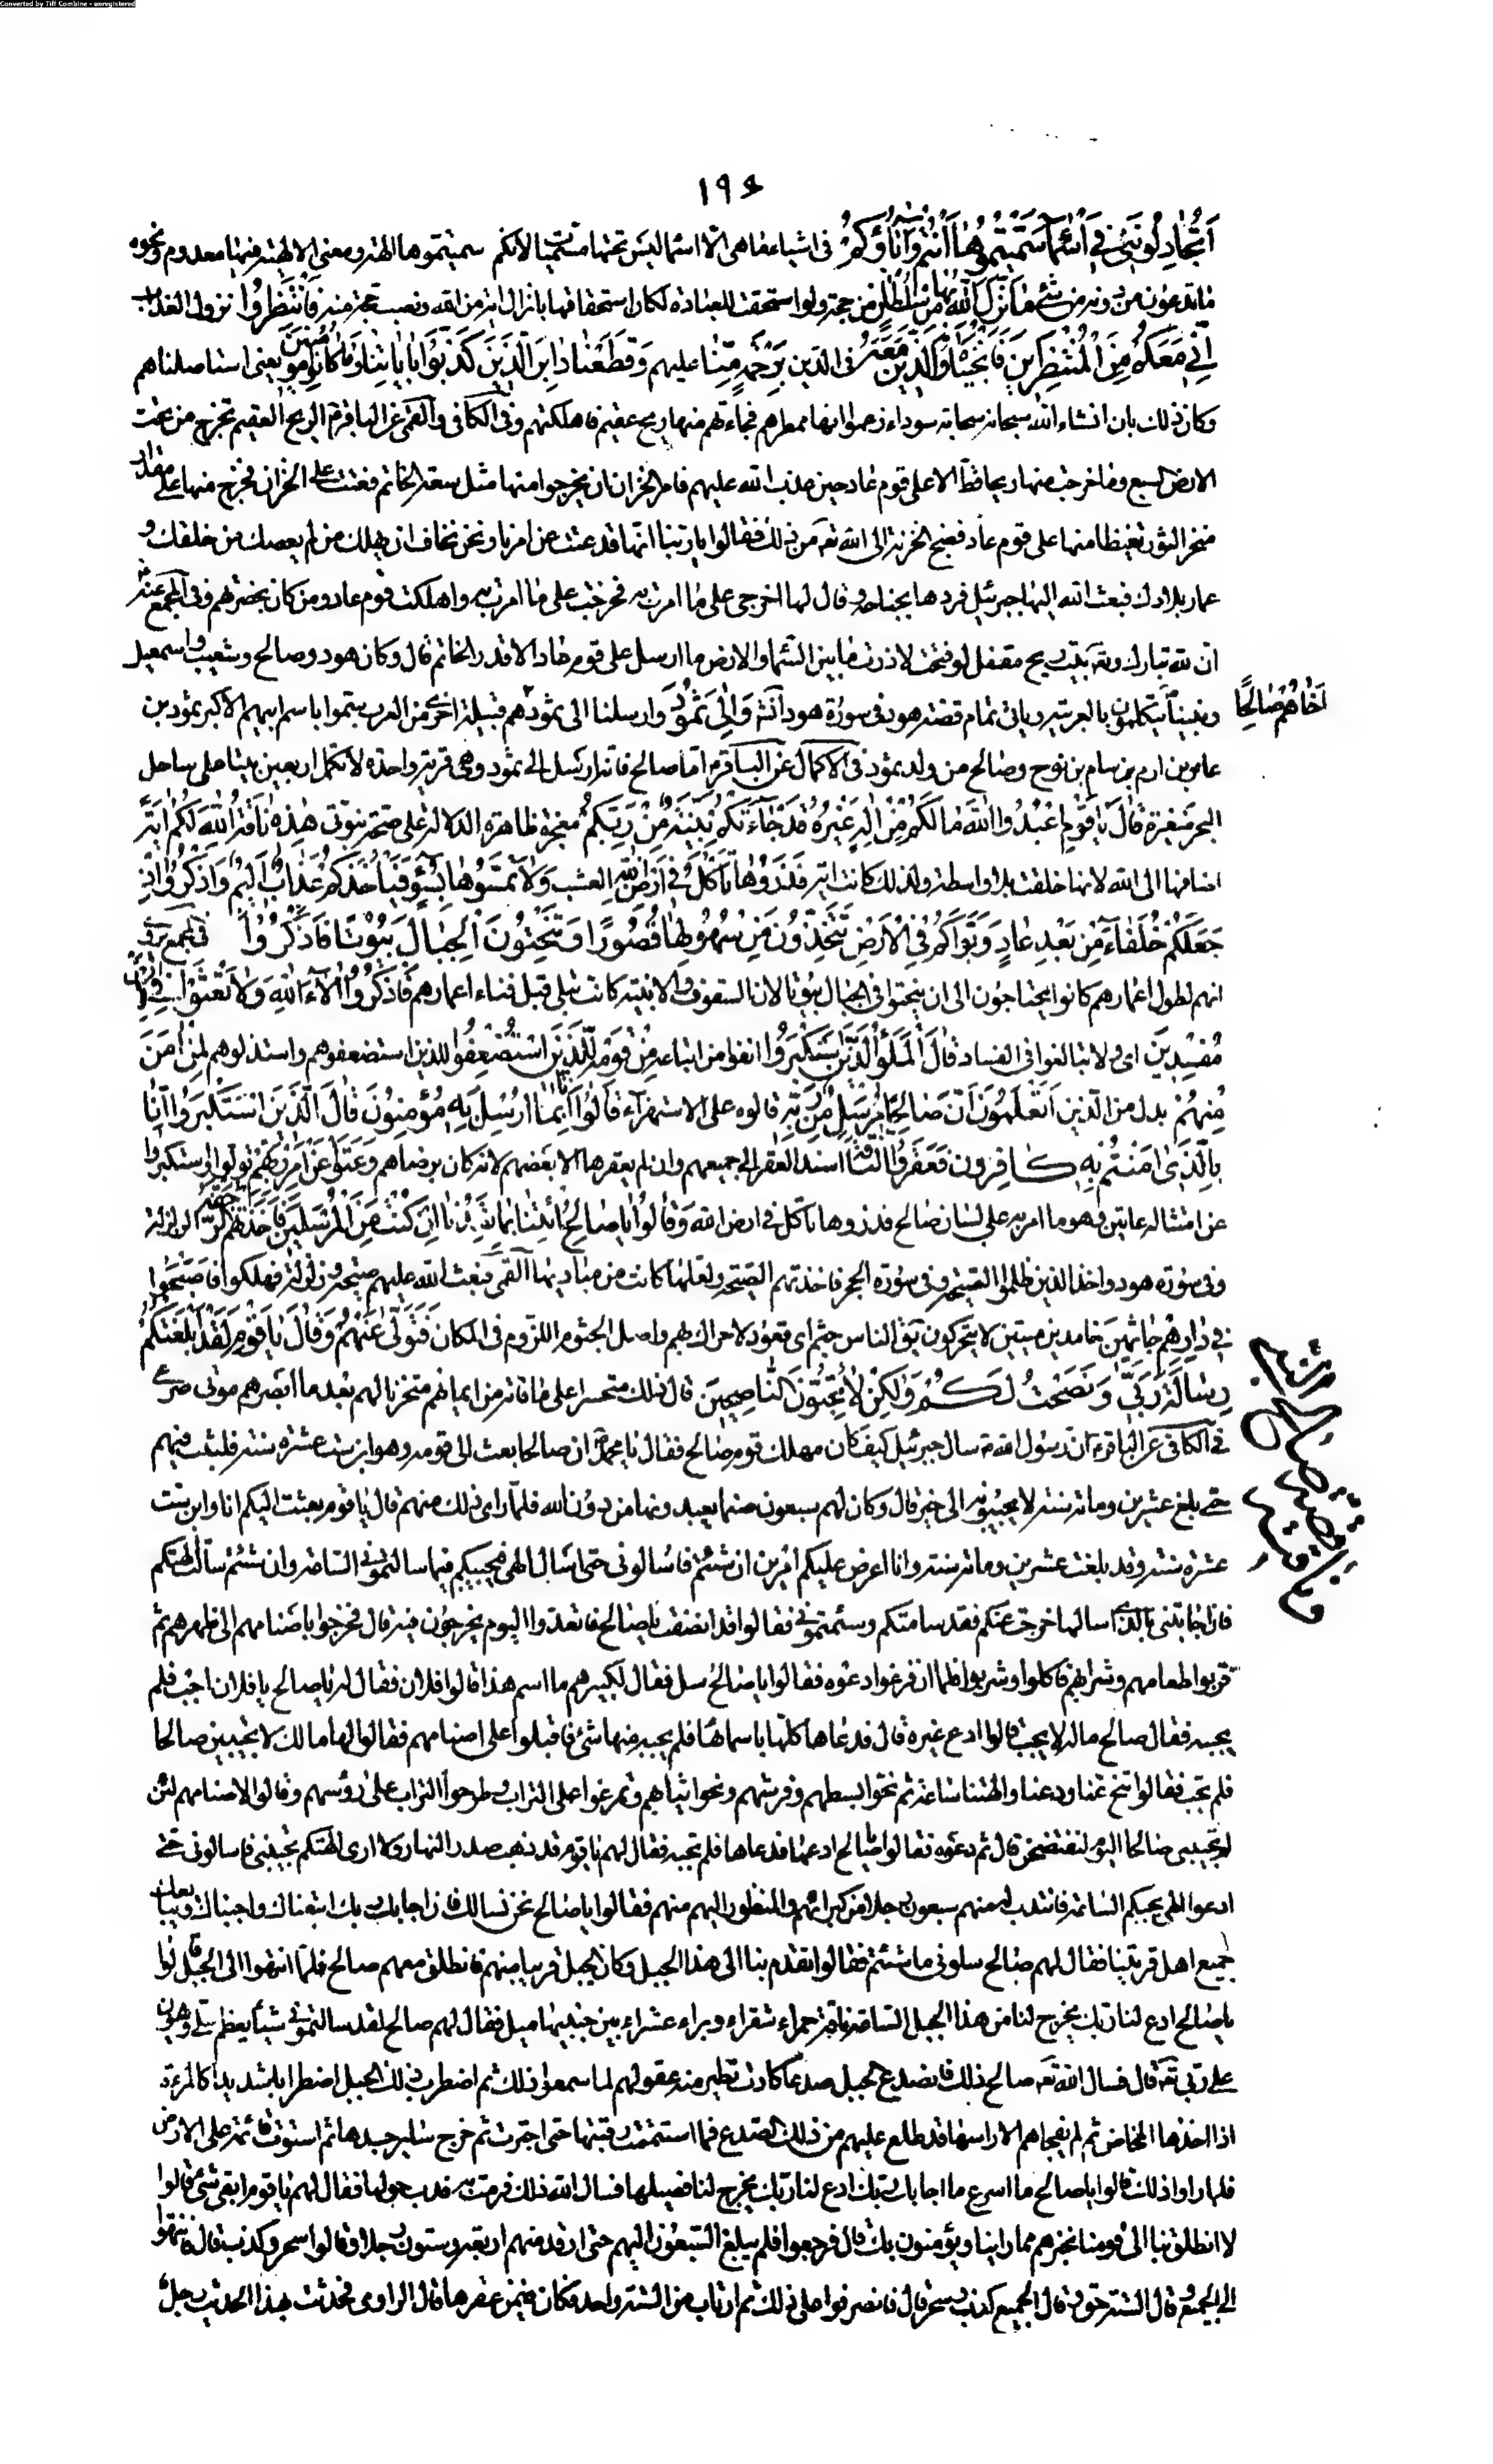 Converted by Tiff Combine - unregistered
١٩٤
اَتُجادِلُونَني في اَسْماءٍ سَمَّيْتُمُوها اَنْتُمْ وَاباؤُكُمْ في اشياء ما هي الّا اسماء ليس تحتها مسمّيات لانكم سميتموها الهة ومعنى الالهية فيها معدوم ونحوه
ما تدعون من دونه من شئ ما نَزَّلَ اللهُ بِها مِنْ سُلْطانٍ من حجة ولو استحقت للعبادة لكان استحقاقها بانزال اية من الله ونصب حجة منه فَانْتَظِرُوا نزول العذاب
اِنّي مَعَكُمْ مِنَ الْمُنْتَظِرينَ فَاَنْجَيْناهُ وَالَّذينَ مَعَهُ في الدين بِرَحْمَةٍ مِنّا عليهم وَقَطَعْنا دابِرَ الَّذينَ كَذَّبُوا بِاياتِنا وَما كانُوا مُؤْمِنينَ يعني استاصلناهم
وكان ذلك بان انشاء الله سبحانه سحابة سوداء زعموا انها ممطرهم فجاءتهم منها ريح عقيم فاهلكتهم وفي الكافي والقمي عن الباقر ع الريح العقيم تخرج من تحت
الارضين السبع وما خرجت منها ريح قط الا على قوم عاد حين غضب الله عليهم فامر الخزان ان يخرجوا منها مثل سعة الخاتم فعتت على الخزان فخرج منها على مقدار
منخر الثور تغيظا منها على قوم عاد فضج الخزنة الى الله تع من ذلك فقالوا يا ربنا انها قد عتت عن امرنا ونحن نخاف ان يهلك من لم يعصك من خلقك و
عمار بلادك فبعث الله اليها جبرئيل فردها بجناحه وقال لها اخرجي على ما امرت به فخرجت على ما امرت به واهلكت قوم عاد ومن كان بحضرتهم وفي المجمع عنه ع
ان لله تبارك وتع بيت ريح مقفل لو فتح لاذرت ما بين السماء والارض ما ارسل على قوم عاد الا قدر الخاتم قال وكان هود وصالح وشعيب واسمعيل
ونبينا ص يتكلمون بالعربية وياتي تمام قصة هود في سورة هود انش وَاِلى ثَمُودَ وارسلنا الى ثمود هم قبيلة اخرى من العرب سموا باسم ابيهم الاكبر ثمود بن
اَخاهُمْ صالِحًا
عابر بن ارم بن سام بن نوح وصالح من ولد ثمود في الاكمال عن الباقر ع اما صالح فانه ارسل الى ثمود وهي قرية واحدة لا تكمل اربعين بيتا على ساحل
البحر صغيرة قالَ يا قَوْمِ اعْبُدُوا اللهَ ما لَكُمْ مِنْ اِلهٍ غَيْرُهُ قَدْ جاءَتْكُمْ بَيِّنَةٌ مِنْ رَبِّكُمْ معجزة ظاهرة الدلالة على صحة نبوتي هذِهِ ناقَةُ اللهِ لَكُمْ ايَةً
اضافها الى الله لانها خلقت بلا واسطة ولذلك كانت اية فَذَرُوها تَأكُلْ في اَرْضِ اللهِ العشب وَلا تَمَسُّوها بِسُوءٍ فَيَأخُذَكُمْ عَذابٌ اَليمٌ وَاذْكُرُوا اِذْ
جَعَلَكُمْ خُلَفاءَ مِنْ بَعْدِ عادٍ وَبَوَّاَكُمْ فِي الْاَرْضِ تَتَّخِذُونَ مِنْ سُهُولِها قُصُورًا وَتَنْحِتُونَ الْجِبالَ بُيُوتًا فَاذْكُرُوا في المجمع يروى
انهم لطول اعمارهم كانوا يحتاجون الى ان ينحتوا في الجبال بيوتا لان السقوف والابنية كانت تبلى قبل فناء اعمارهم فَاذْكُرُوا الاءَ اللهِ وَلا تَعْثَوْا فِي الْاَرْضِ
مُفْسِدينَ اي ولا تبالغوا في الفساد قالَ الْمَلَاُ الَّذينَ اسْتَكْبَرُوا انفوا من اتباعه مِنْ قَوْمِهِ لِلَّذينَ اسْتُضْعِفُوا للذين استضعفوهم واستذلوهم لِمَنْ امَنَ
مِنْهُمْ بدل من الذين اَتَعْلَمُونَ اَنَّ صالِحًا مُرْسَلٌ مِنْ رَبِّهِ قالوه على الاستهزاء قالُوا اِنّا بِما اُرْسِلَ بِهِ مُؤْمِنُونَ قالَ الَّذينَ اسْتَكْبَرُوا اِنّا
بِالَّذي امَنْتُمْ بِهِ كافِرُونَ فَعَقَرُوا النّاقَةَ اسند العقر الى جميعهم وان لم يعقرها الا بعضهم لانه كان برضاهم وَعَتَوْا عَنْ اَمْرِ رَبِّهِمْ تولوا واستكبروا
عن امتثاله عاتين وهو ما امر به على لسان صالح فذروها تاكل في ارض الله وَقالُوا يا صالِحُ ائْتِنا بِما تَعِدُنا اِنْ كُنْتَ مِنَ الْمُرْسَلينَ فَاَخَذَتْهُمُ الرَّجْفَةُ الزلزلة
وفي سورة هود واخذ الذين ظلموا الصيحة وفي سورة الحجر فاخذتهم الصيحة ولعلها كانت من مباديها القمي فبعث الله عليهم صيحة وزلزلة فهلكوا فَاَصْبَحُوا
في دارِهِمْ جاثِمينَ خامدين ميتين لا يتحركون يق الناس جثم اي قعود لا حراك بهم واصل الجثوم اللزوم في المكان فَتَوَلّى عَنْهُمْ وَقالَ يا قَوْمِ لَقَدْ اَبْلَغْتُكُمْ
رِسالَةَ رَبّي وَنَصَحْتُ لَكُمْ وَلكِنْ لا تُحِبُّونَ النّاصِحينَ قال ذلك متحسرا على ما فاته من ايمانهم متحزنا لهم بعد ما ابصرهم موتى صرعى
في الكافي عن الباقر ع ان رسول الله ص سال جبرئيل كيف كان مهلك قوم صالح فقال يا محمد ان صالحا بعث الى قومه وهو ابن ست عشرة سنة فلبث فيهم
حتى بلغ عشرين ومائة سنة لا يجيبونه الى خير قال وكان لهم سبعون صنما يعبدونها من دون الله فلما راى ذلك منهم قال يا قوم بعثت اليكم انا وابن ست
عشرة سنة وقد بلغت عشرين ومائة سنة وانا اعرض عليكم امرين ان شئتم فاسالوني حتى اسال الهي فيجيبكم فيما سالتموني الساعة وان شئتم سالت الهتكم
فان اجابتني بالذي اسالها خرجت عنكم فقد سامتكم وسئمتموني فقالوا قد انصفت يا صالح فاتعدوا ليوم يخرجون فيه قال فخرجوا باصنامهم الى ظهرهم ثم
قربوا طعامهم وشرابهم فاكلوا وشربوا فلما ان فرغوا دعوه فقالوا يا صالح سل فقال لكبيرهم ما اسم هذا قالوا فلان فقال له يا صالح يا فلان اجب فلم
يجبه فقال صالح ما له لا يجيب قالوا ادع غيره قال فدعاها كلها باسمائها فلم يجبه منها شئ فاقبلوا على اصنامهم فقالوا لها ما لك لا تجيبين صالحا
فلم تجب فقالوا تنح عنا ودعنا والهتنا ساعة ثم نحوا بسطهم وفرشهم ونحوا ثيابهم وتمرغوا على التراب وطرحوا التراب على رؤسهم وقالوا لاصنامهم لئن
لم تجيبي صالحا اليوم لنفتضحن قال ثم دعوه فقالوا يا صالح ادعها فدعاها فلم تجبه فقال لهم يا قوم قد ذهب صدر النهار ولا ارى الهتكم تجيبني فاسالوني حتى
ادعوا الهي يجيبكم الساعة فانتدب له منهم سبعون رجلا من كبرائهم والمنظور اليهم منهم فقالوا يا صالح نحن نسالك فان اجابك ربك اتبعناك واجبناك ويبايعك
جميع اهل قريتنا فقال لهم صالح سلوني ما شئتم فقالوا تقدم بنا الى هذا الجبل وكان الجبل قريبا منهم فانطلق معهم صالح فلما انتهوا الى الجبل قالوا
يا صالح ادع لنا ربك يخرج لنا من هذا الجبل الساعة ناقة حمراء شقراء وبراء عشراء بين جنبيها ميل فقال لهم صالح لقد سالتموني شيئا يعظم علي ويهون
على ربي تع قال فسال الله تع صالح ذلك فانصدع الجبل صدعا كادت تطير منه عقولهم لما سمعوا ذلك ثم اضطرب ذلك الجبل اضطرابا شديدا كالمرءة
اذا اخذها المخاض ثم لم يفجاهم الا راسها قد طلع عليهم من ذلك الصدع فما استتمت رقبتها حتى اجترت ثم خرج سائر جسدها ثم استوت قائمة على الارض
فلما راوا ذلك قالوا يا صالح ما اسرع ما اجابك ربك ادع لنا ربك يخرج لنا فصيلها فسال الله ذلك فرمت به فدب حولها فقال لهم يا قوم ابقي شئ قالوا
لا انطلق بنا الى قومنا نخبرهم بما راينا ويؤمنون بك قال فرجعوا فلم يبلغ السبعون اليهم حتى ارتد منهم اربعة وستون رجلا وقالوا سحر وكذب قال فانتهوا
الى الجميع وقال الستة حق وقال الجميع كذب وسحر قال فانصرفوا على ذلك ثم ارتاب من الستة واحد فكان فيمن عقرها قال الراوي فحدثت بهذا الحديث رجلا